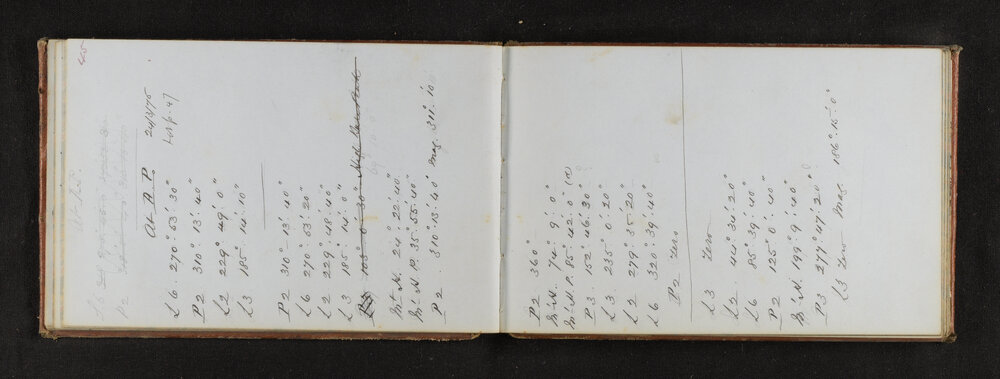 At A P 24/3/75
L6. 270°: 53': 30"
P2 310°: 13': 40"
L2 229°: 49': 0"
L3 185°: 14': 10"
P2 310° 13': 40"
L6 270°: 53': 20"
L2 229°: 48': 40"
L3 185°: 14': 0"
Mt N. 24°: 22': 40"
Mt N. P. 35°: 55': 40"
P2. 310°: 13': 40" Mag. 311°. 10'
P2 360°
Mt N. 74°. 9'. 0"
Mt N. P. 85°: 42'. 0"
P3. 152°: 46': 30"
L3 235° 0': 20"
L2 279°: 35': 20"
L6 320°: 39': 40"
P2 Zero
L3 Zero
L2. 44° 34': 20"
L6 85°: 39': 40"
P2 125° 0': 40"
Mt N. 199°: 9': 40"
P3 277° 47': 20"
L3 Zero Mag. 186°: 15'. 0"